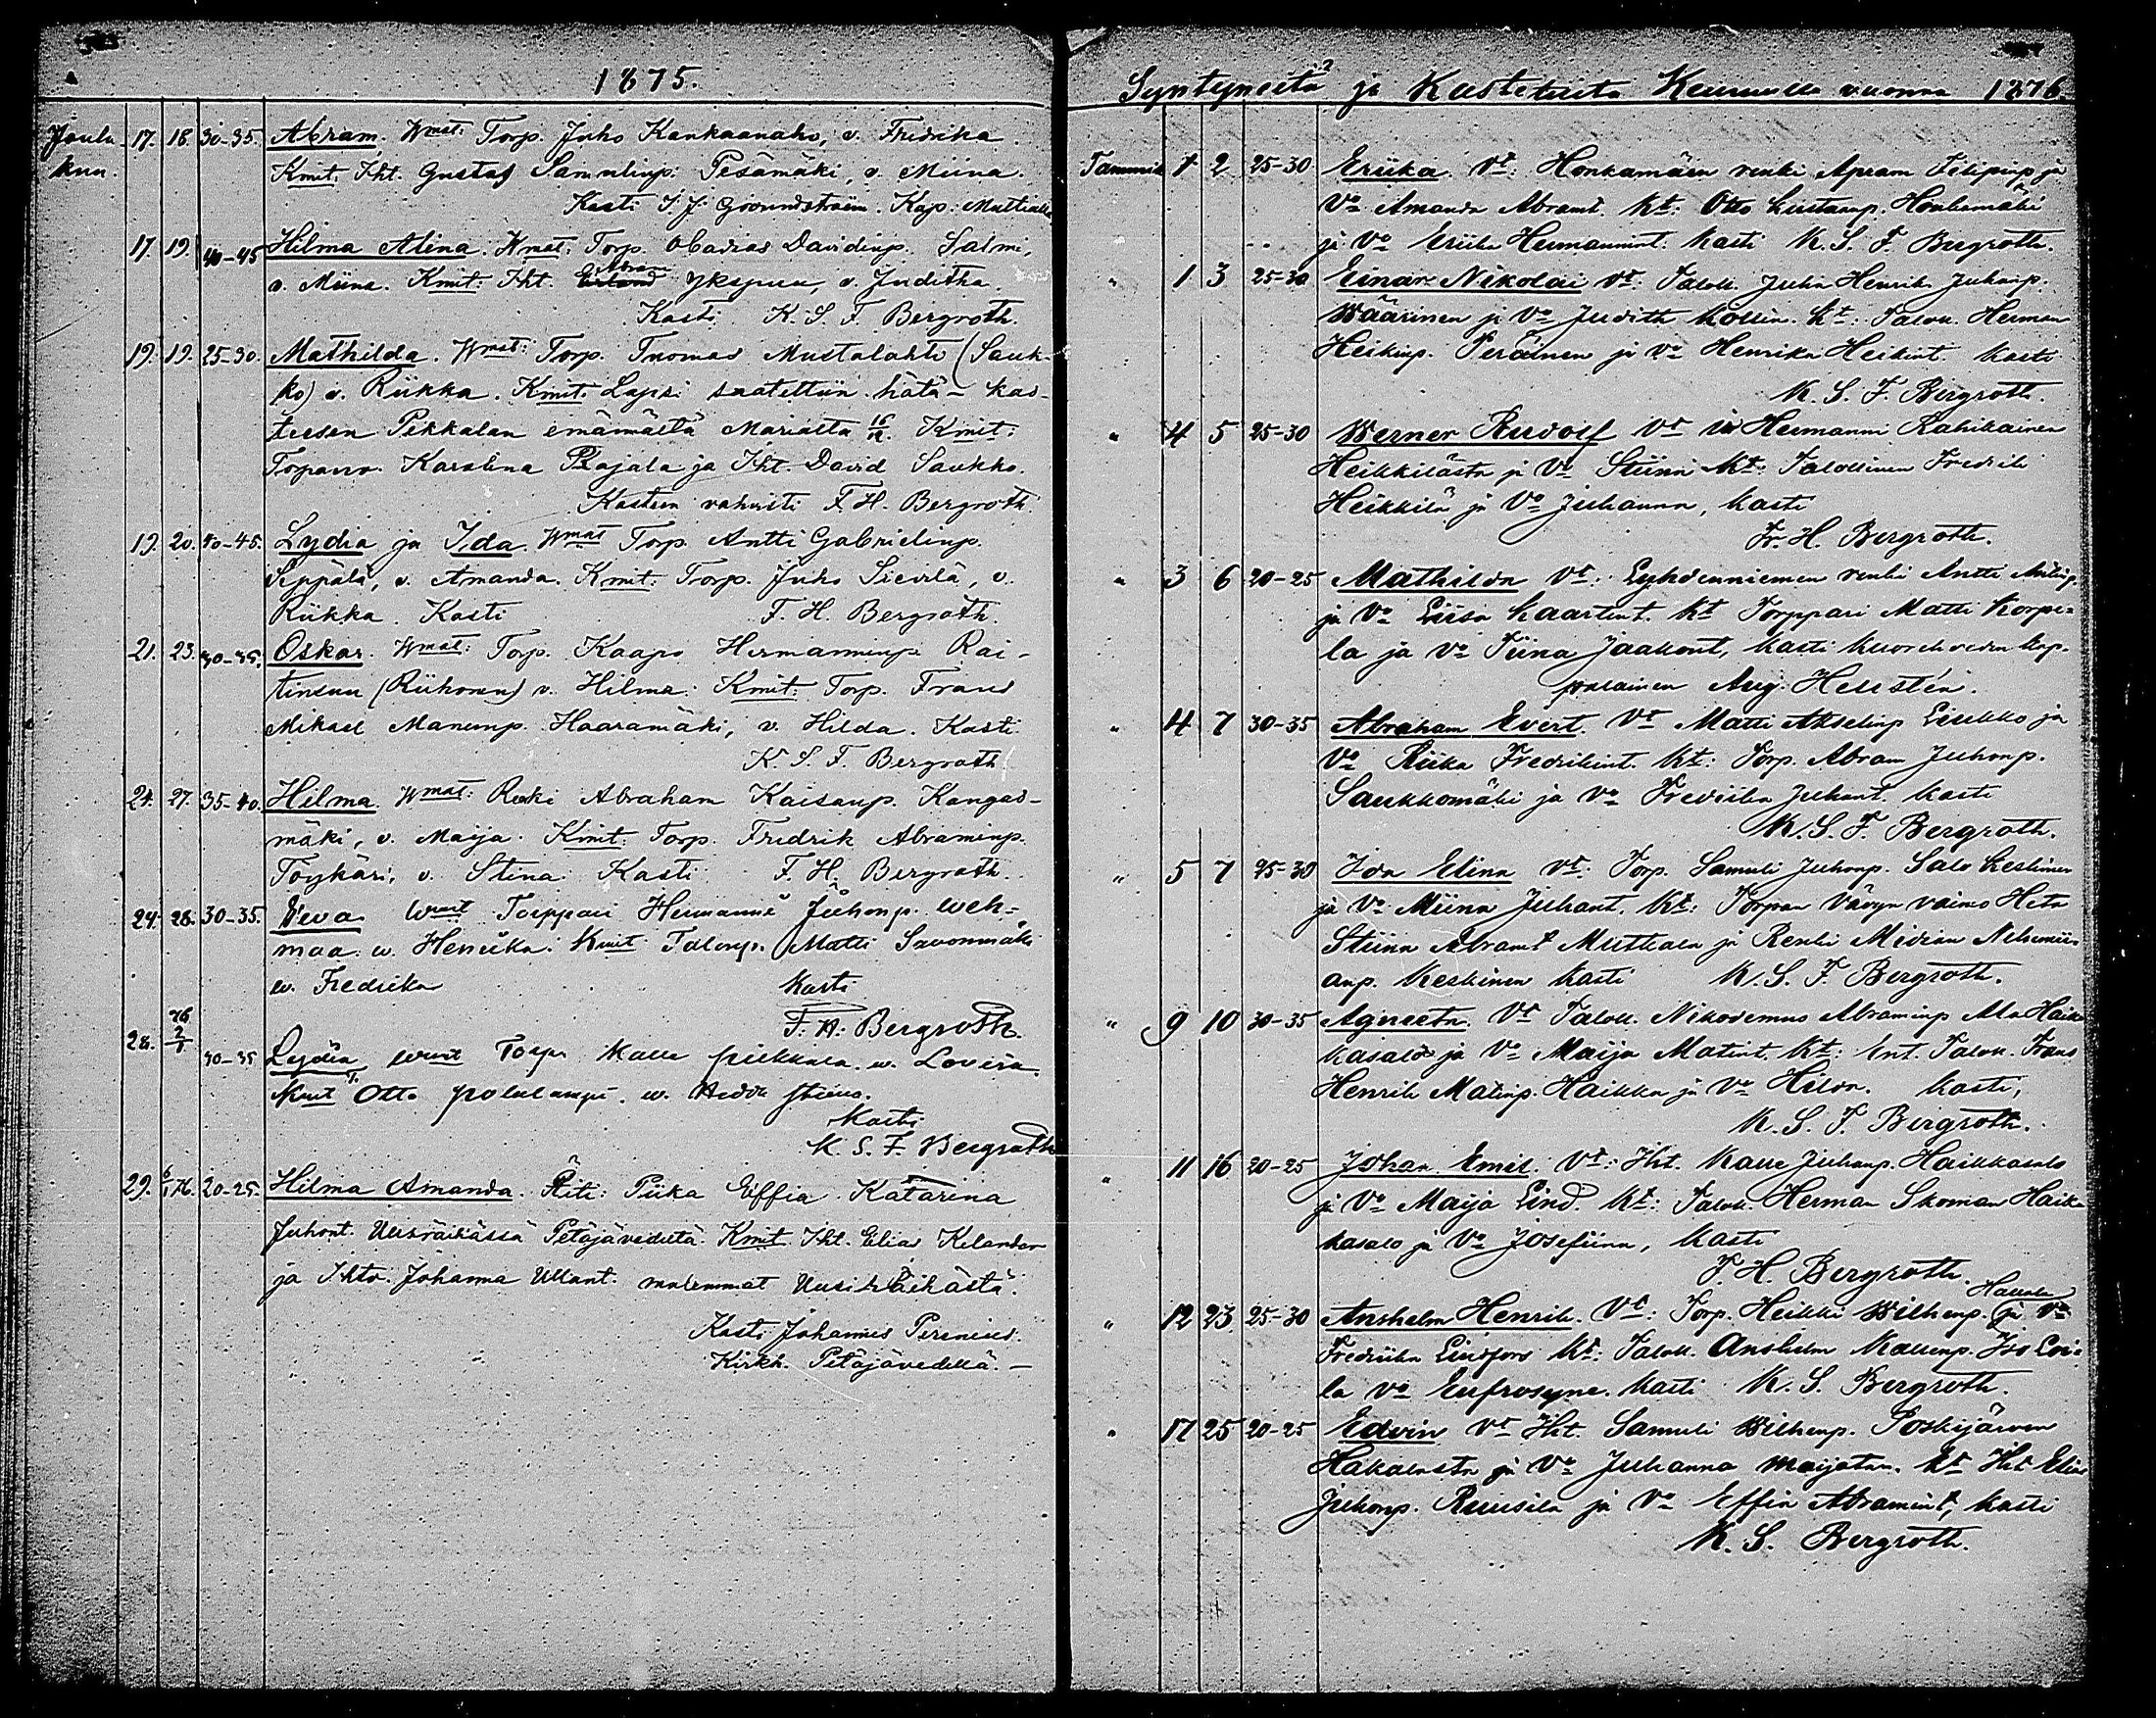 1875.
Joulu 17. 18. 30-35. Abram. Wmat: Torp. Juho Kankaanaho, v. Fredrika.
kuu. Kmit. Iht. Gustaf Samulinp. Pesämäki, v. Miina.
Kasti I. J. Groundstroëm. Kap. Multialla
17. 19. 40-45 Hilma Alina. Wmat: Torp. Obadias Davidinp. Salmi,
v. Miina. Kmit: Iht. Abram Yksjuu, v. Juditha.
Kasti K. S. F. Bergroth.
19. 19. 25-30. Mathilda. Wmat: Torp. Tuomas Mustalahti (Sauk-
ko) v. Riikka. Kmit. Lapsi saatettiin hätä-kas-
teesen Pekkalan emännältä Marialta Kmit:
Torpanv. Karolina Rajala ja Iht. David Saukko.
Kasteen vahvisti F. H. Bergroth
19. 20. 40-45. Lydia ja Ida. Wmat Torp. Antti Gabrielinp.
Seppälä, v. Amanda. Kmit: Torp. Juho Sievilä, v.
Riikka. Kasti F. H. Bergroth.
21. 23. 30-35. Oskar. Wmat: Torp. Kaapo Hermanninp. Rai-
tinsuu (Riihonen) v. Hilma: Kmit: Torp. Frans
Mikael Manunp. Haaramäki, v. Hilda. Kasti
K. S. F. Bergroth
24. 27. 35-40. Hilma. Wmat: Renki Abraham Kaisanp. Kangas-
mäki, v. Maija. Kmit: Torp. Fredrik Abraminp.
Töykäri, v. Stina. Kasti F. H. Bergroth.
24. 28. 30-35. Eeva Wmat Torppari Hermanni Juhonp. Weh-
maa. w. Henrika. Kmit Talonp. Matti Savonmäki
w. Fredrika Kasti
F. H. Bergroth.
28. 2/1 76 30-35 Lydia Wmat Torp. Kalle Pirkkala. w. Lovisa.
Kmit T. Otto Polulampi. w. Hedda Stiina.
Kasti
K. S. F. Bergroth
29. 6/1 76. 20-25. Hilma Amanda. Äiti: Piika Effia Katarina
Juhont. Uusräikässä Petäjävedeltä. Kmit. Iht. Elias Kilander
ja Ihtv. Johanna Ullant. molemmat Uusiräikästä.
Kasti Johannes Perenius.
Kirkh. Petäjävedellä. -
Syntyneitä ja Kastetuita Keuruulla vuonna 1876.
Tammik 1 2 25-30 Eriika. Vt: Honkamäen renki Apram Filipinp ja
Vo Amanda Abramt. Kt: Otto Kustaanp. Honkamäki
ja Vo Eriika Hermannint. Kasti K. S. F. Bergroth.
" 1 3 25-30 Einar Nikolai Vt: Taloll. Juha Henrik Juhanp.
Wäärinen ja Vo Judith Kollin. Kt: Taloll. Herman
Heikinp. Peräinen ja Vo Henrika Heikint. Kasti
K. S. F. Bergroth.
" 4 5 25-30 Werner Rudolf Vt Hermanni Kahikainen
Heikkilästä ja Vo Stiina Kt: Talollinen Fredrik
Heikkilä ja Vo Juhanna, Kasti
Fr. H. Bergroth.
" 3 6 20-25 Mathilda Vt: Lyhdenniemen renki Antti
ja Vo Liisa Kaarlent. Kt Torppari Matti Korpe-
la ja Vo Tiina Jaakont, Kasti Kuorehveden kap-
palainen Aug. Hellstén.
" 4 7 30-35 Abraham Evert. Vt Matti Akselinp Liukko ja
Vo Riika Fredrikint. Kt: Torp. Abram Juhonp.
Saukkomäki ja Vo Fredrika Juhant. Kasti
K. S. F. Bergroth.
" 5 7 25-30 Ida Elina Vt: Torp. Samuli Juhonp. Salo Keskinen
ja Vo Miina Juhant. Kt: Torpan vävyn vaimo Heta
Stiina Abramt Multiala ja Renki Midian Nehemii-
anp. Keskinen Kasti K. S. F. Bergroth.
" 9 10 30-35 Agneeta. Vt Taloll. Nikodemus Abraminp Ala Haik-
kasalo ja Vo Maija Matint. Kt: Ent. Taloll. Frans
Henrik Matinp. Haikka ja Vo Hilda. Kasti,
K. S. F. Bergroth.
" 11 16 20-25 Johan Emil. Vt: Iht. Kalle Juhanp. Haikkasalo
ja Vo Maija Lind. Kt: Taloll. Herman Skoman Haik-
kasalo ja Vo Josefiina, Kasti
F. H. Bergroth.
" 12 23 25-30 Anshelm Henrik. Vt: Torp. Heikki Wilhenp. ja Vo
Fredrika Lindfors Kt: Taloll. Anshelm Kallenp. Iso Loi-
la Vo Eufrosyne. Kasti K. S. Bergroth.
" 17 25 20-25 Edvin Vt Iht. Samuli Wilhenp. Poskijärven
Hakalasta ja Vo Juhanna Maijatar. Kt Iht Elias
Juhonp. Ruusila ja Vo Effia Abramint, Kasti
K. S. Bergroth.